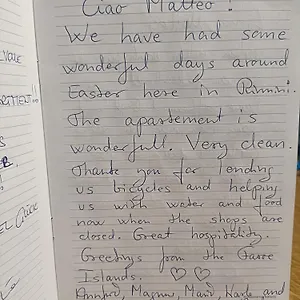 Ciao Matteo!
We have had some
wonderful days around
Easter here in Rimini.
The apartement is
wonderfull. Very clean.
Thank you for lending
us bicycles and helping
us with water and food
now when the shops are
closed. Great hospitality.
Greetings from the Faroe
Islands. ♡♡
Magnus, and